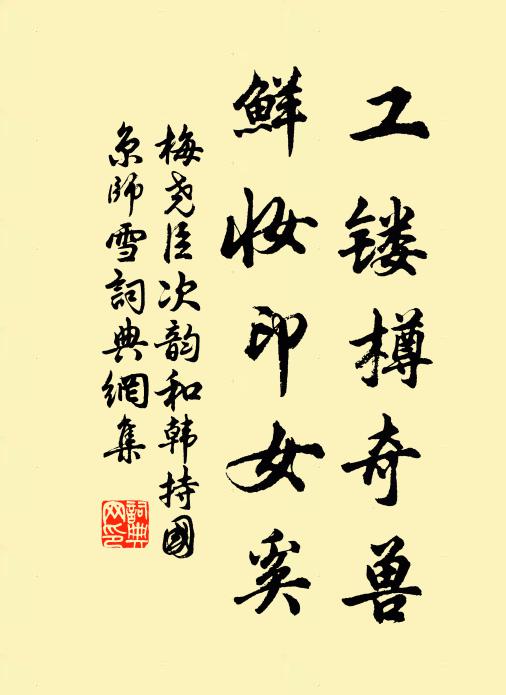 工镂樽奇兽
鲜妆印女奚
梅尧臣次韵和韩持国
京师雪詞典網集
詞典
网印